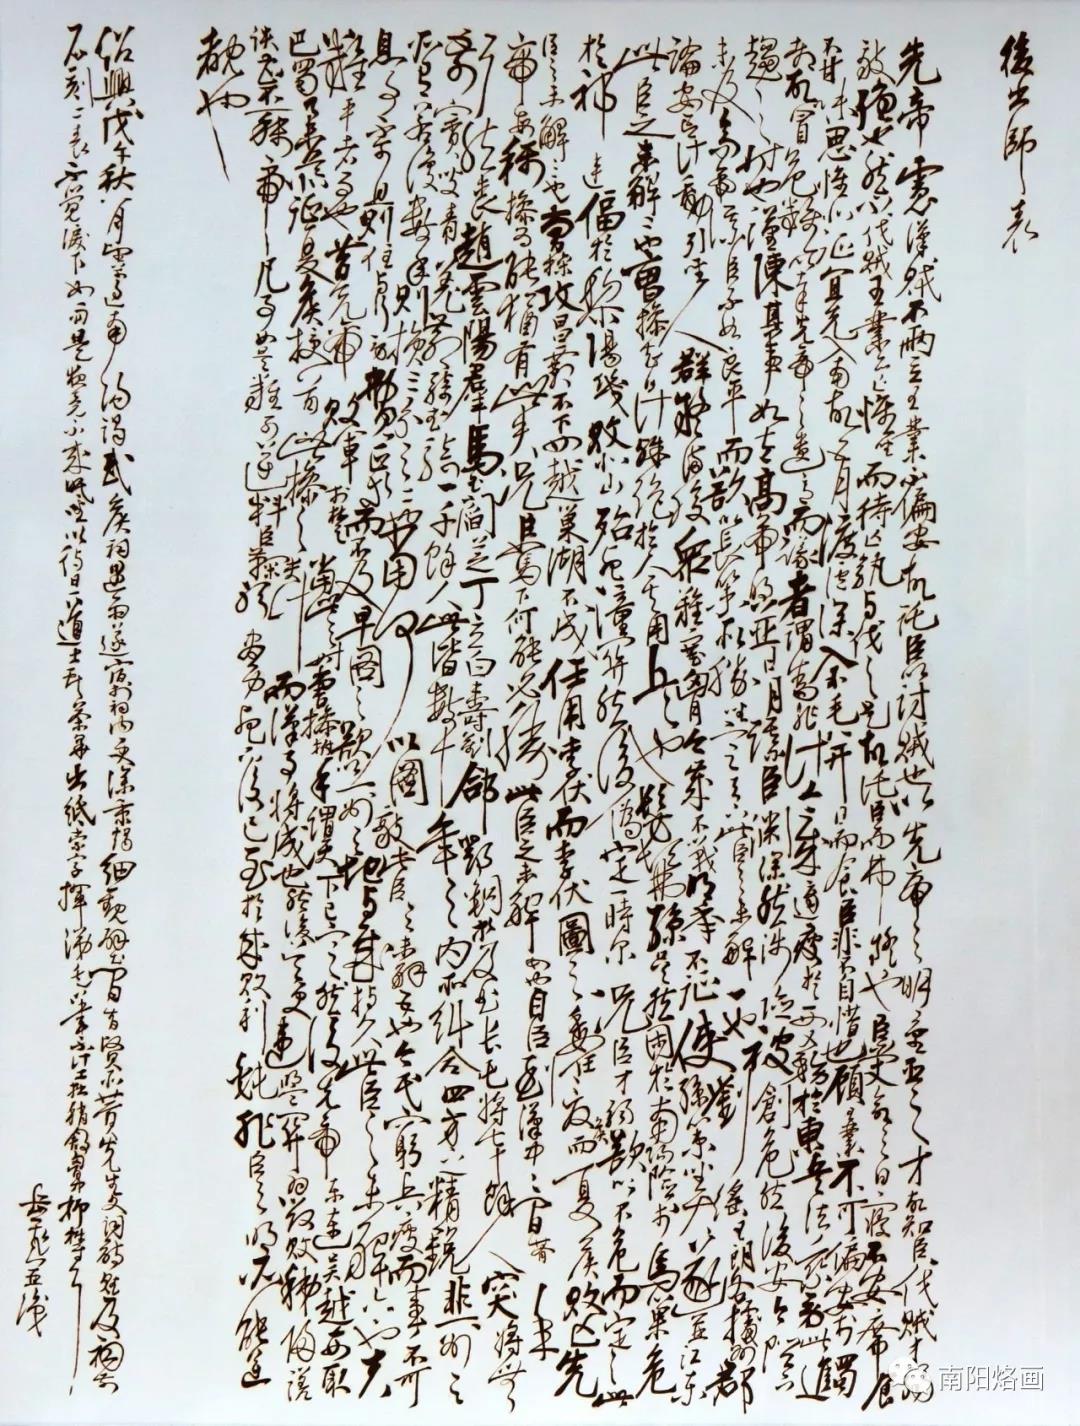 後出師表
先帝慮漢賊不兩立王業不偏安故託臣以討賊也以先帝之明量臣之才故知臣伐賊才弱
敵強也然不伐賊王業亦亡惟坐而待亡孰與伐之是故託臣而弗疑也臣受命之日寢不安席食
不甘味思惟北征宜先入南故五月渡瀘深入不毛并日而食臣非不自惜也顧王業不可偏安於蜀
都故冒危難以奉先帝之遺意而議者謂為非計今賊適疲於西又務於東兵法乘勞此進
趨之時也謹陳其事如左高帝明並日月謀臣淵深然涉險被創危然後安今陛下
未及高帝謀臣不如良平而欲以長策取勝坐定天下此臣之未解一也劉繇王朗各據州郡
論安言計動引聖人群疑滿腹眾難塞胸今歲不戰明年不征使孫策坐大遂並江東
此臣之未解二也曹操智計殊絕於人其用兵也髣髴孫吳然困於南陽險於烏巢危
於祁連偪於黎陽幾敗北山殆死潼關然後偽定一時爾況臣才弱而欲以不危而定之此
臣之未解三也曹操五攻昌霸不下四越巢湖不成任用李伏而李伏圖之委任夏侯而夏侯敗亡先
帝每稱操為能猶有此失況臣駑下何能必勝此臣之未解四也自臣到漢中中間朞年
耳然喪趙雲陽群馬玉閻芝丁立白壽劉郃鄧銅等及曲長屯將七十餘人突將無
前賨叟青羌散騎武騎一千餘人此皆數十年之內所糾合四方之精銳非一州之
所有若復數年則損三分之二也當何以圖敵此臣之未解五也今民窮兵疲而事不可
息事不可息則住與行勞費正等而不及早圖之欲以一州之地與賊持久此臣之未解六也夫
難平者事也昔先帝敗軍於楚當此之時曹操拊手謂天下已定然後先帝東連吳越西取
巴蜀舉兵北征夏侯授首此操之失計而漢事將成也然後吳更違盟關羽毀敗秭歸蹉
跌曹丕稱帝凡事如是難可逆料臣鞠躬盡力死而後已至於成敗利鈍非臣之明所能逆
覩也
紹興戊午秋八月望前過南陽謁武侯祠遇雨遂宿於祠內更深秉燭細觀壁間昔賢所贊先生文詞詩賦及祠前
石刻二表不覺淚下如雨是夜竟不成眠坐以待旦道士獻茶畢出紙索字揮涕走筆不計工拙稍舒胸中抑鬱耳
岳飛並識
南阳烙画